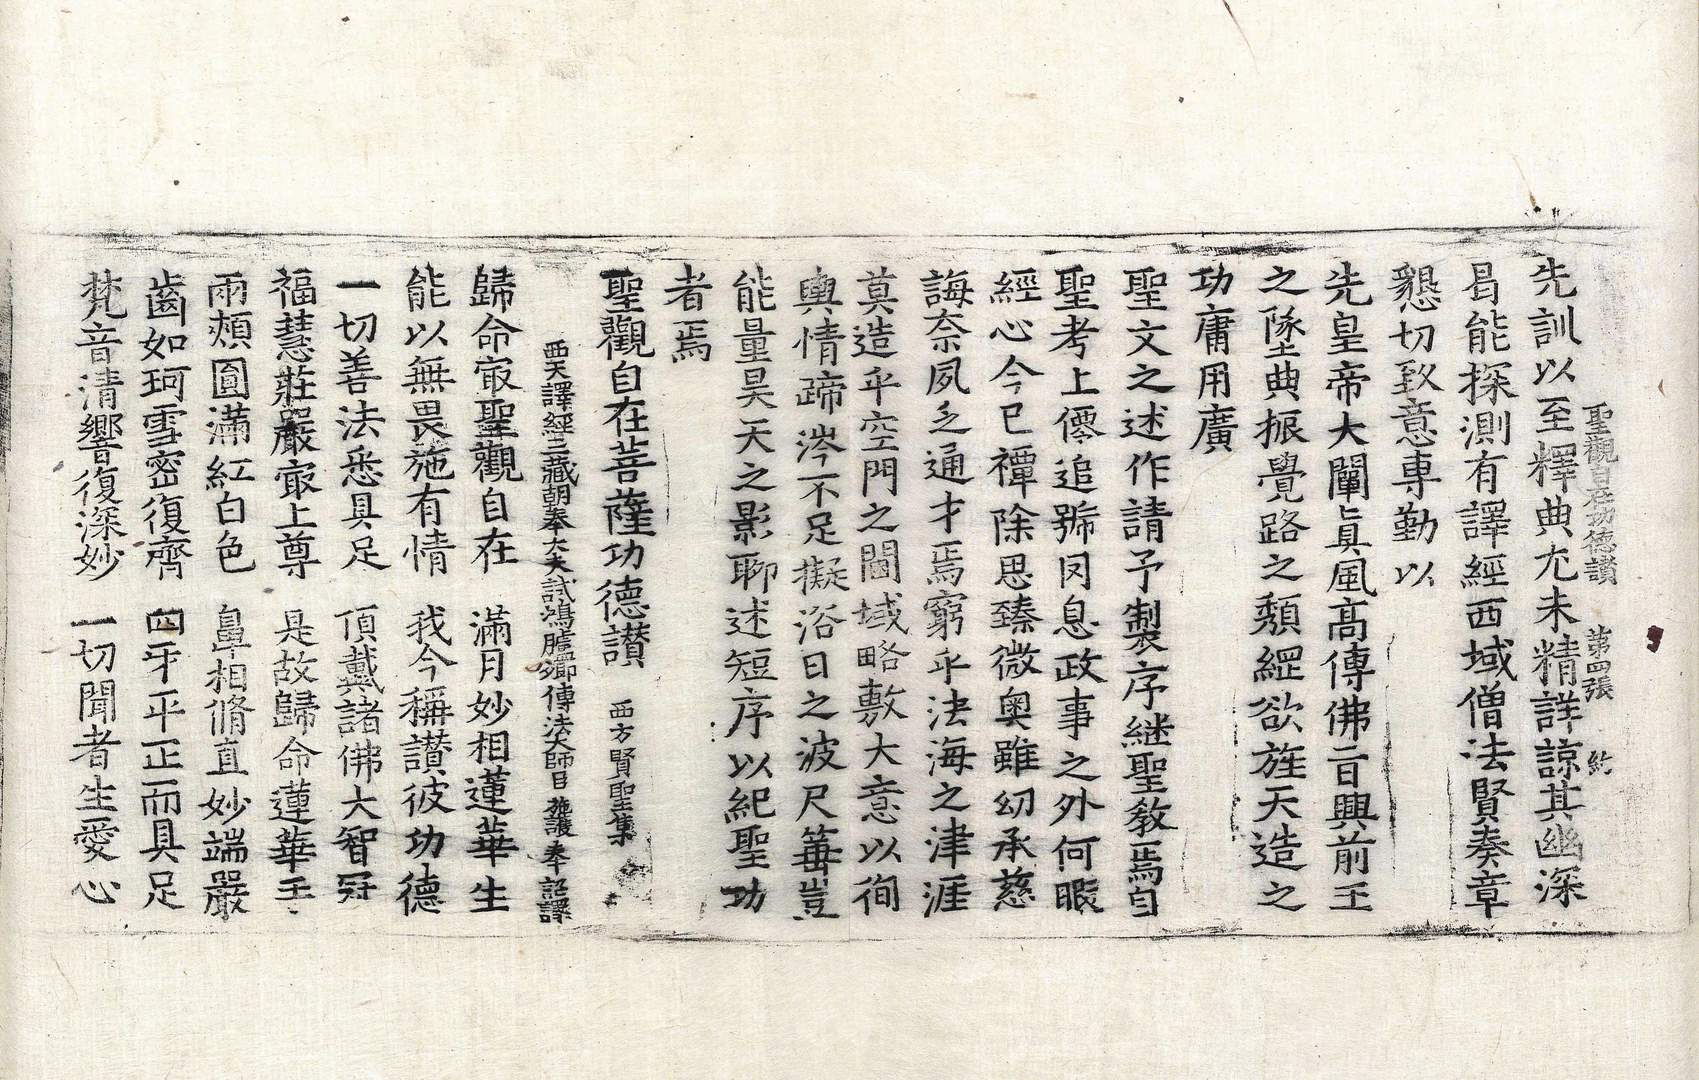 聖觀自在功德讃 第四張 約
先訓以至釋典尤未精詳諒其幽深
曷能探測有譯經西域僧法賢奏章
懇切致意專勤以
先皇帝大闡眞風髙傳佛旨興前王
之墜典振覺路之頽綱欲旌天造之
功庸用廣
聖文之述作請予製序継聖教焉自
聖考上僊追號罔息政事之外何暇
經心今已禫除思臻微奥雖㓜承慈
誨奈夙乏通才焉窮乎法海之津涯
莫造乎空門之閫域略敷大意以徇
輿情蹄涔不足擬浴日之波尺箠豈
能量昊天之影聊述短序以紀聖功
者焉
聖觀自在菩薩功德讃 西方賢聖集
西天譯經三藏朝奉大夫試鴻臚卿傳法大師臣施護奉 詔譯
歸命㝡聖觀自在 滿月妙相蓮華生
能以無畏施有情 我今稱讃彼功德
一切善法悉具足 頂戴諸佛大智冠
福慧莊嚴㝡上尊 是故歸命蓮華王
兩頰圓滿紅白色 鼻相脩直妙端嚴
齒如珂雪密復齊 四牙平正而具足
梵音清響復深妙 一切聞者生愛心